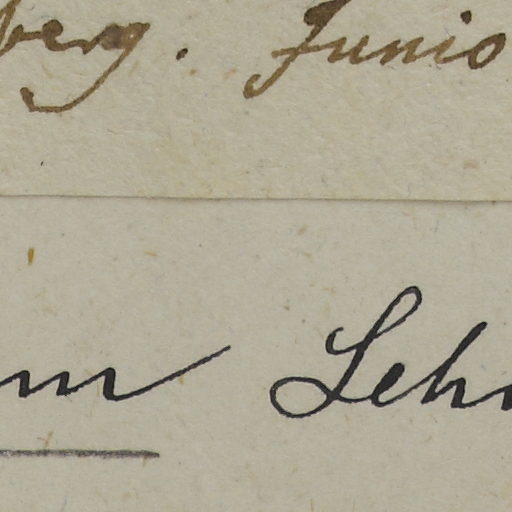 berg. Junio
m Leh